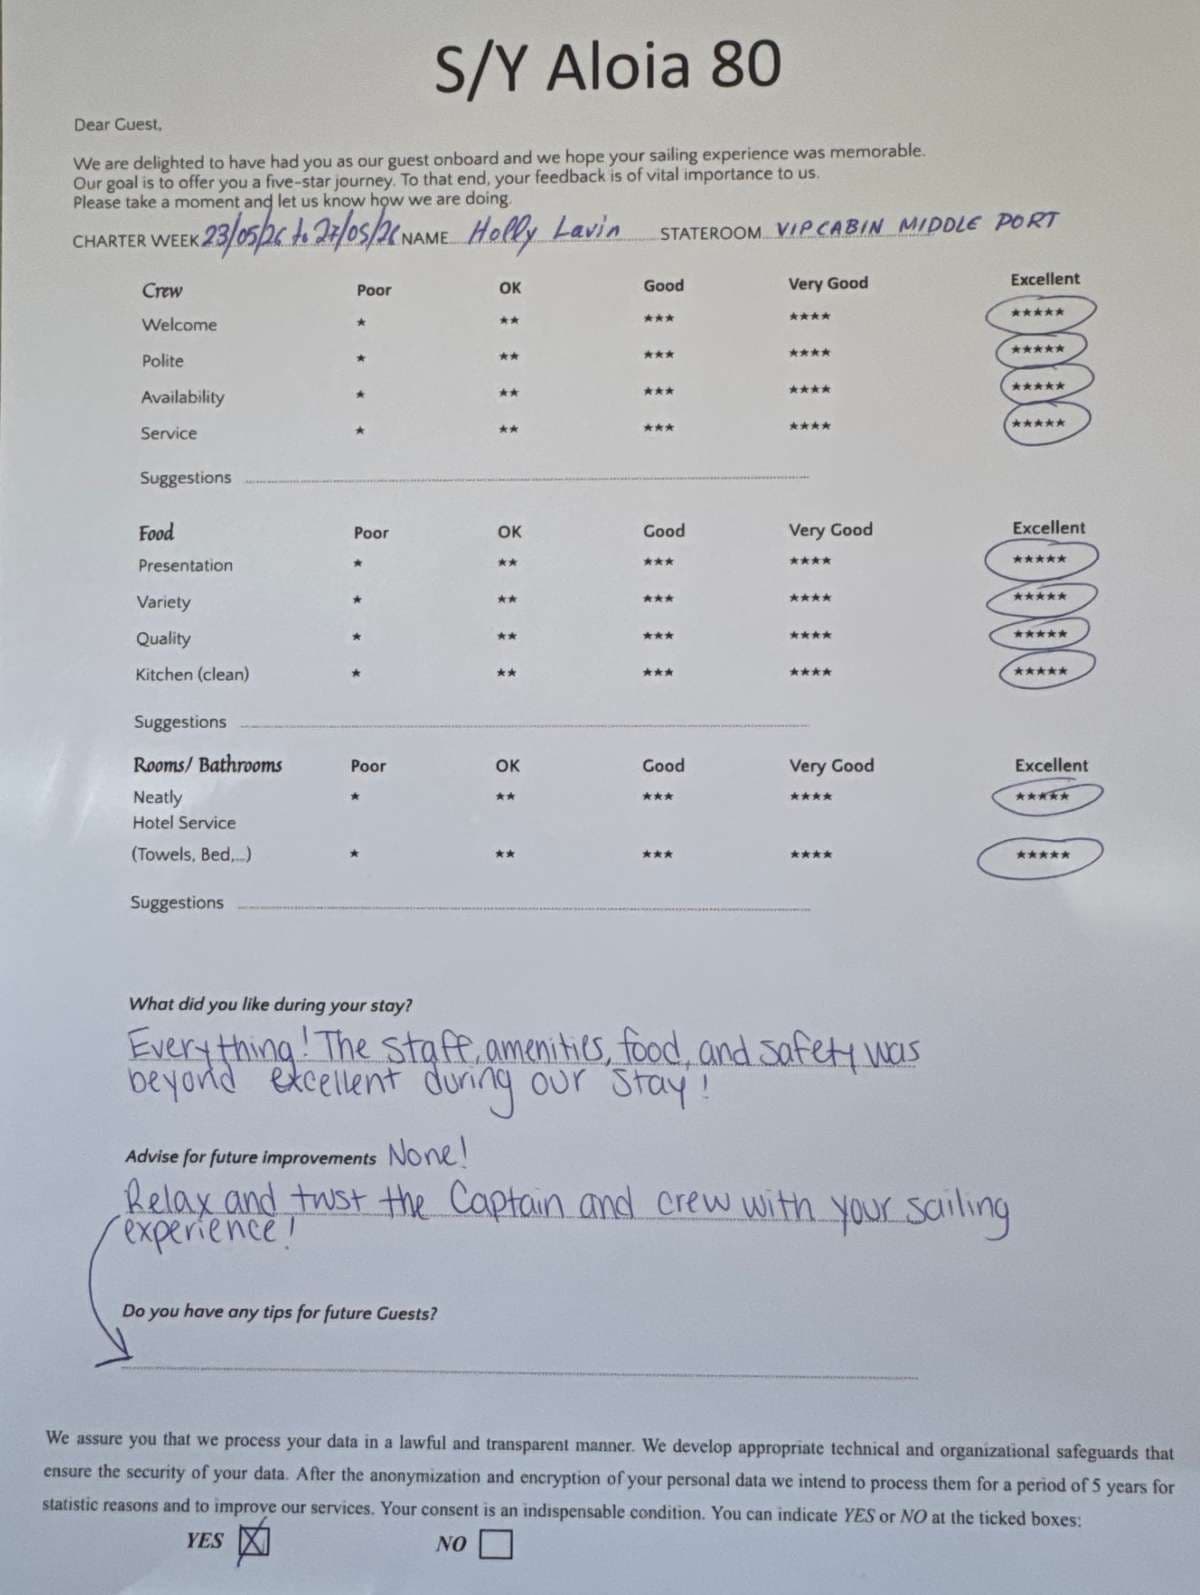 S/Y Aloia 80
Dear Guest,
We are delighted to have had you as our guest onboard and we hope your sailing experience was memorable.
Our goal is to offer you a five-star journey. To that end, your feedback is of vital importance to us.
Please take a moment and let us know how we are doing.
CHARTER WEEK 23/05/26 to 27/05/26 NAME Holly Lavin STATEROOM VIP CABIN MIDDLE PORT
Crew Poor OK Good Very Good Excellent
Welcome ★ ★★ ★★★ ★★★★ ★★★★★
Polite ★ ★★ ★★★ ★★★★ ★★★★★
Availability ★ ★★ ★★★ ★★★★ ★★★★★
Service ★ ★★ ★★★ ★★★★ ★★★★★
Suggestions
Food Poor OK Good Very Good Excellent
Presentation ★ ★★ ★★★ ★★★★ ★★★★★
Variety ★ ★★ ★★★ ★★★★ ★★★★★
Quality ★ ★★ ★★★ ★★★★ ★★★★★
Kitchen (clean) ★ ★★ ★★★ ★★★★ ★★★★★
Suggestions
Rooms/ Bathrooms Poor OK Good Very Good Excellent
Neatly ★ ★★ ★★★ ★★★★ ★★★★★
Hotel Service
(Towels, Bed,...) ★ ★★ ★★★ ★★★★ ★★★★★
Suggestions
What did you like during your stay?
Everything! The staff, amenities, food, and safety was
beyond excellent during our stay!
Advise for future improvements None!
Relax and trust the Captain and crew with your sailing
experience!
Do you have any tips for future Guests?
We assure you that we process your data in a lawful and transparent manner. We develop appropriate technical and organizational safeguards that
ensure the security of your data. After the anonymization and encryption of your personal data we intend to process them for a period of 5 years for
statistic reasons and to improve our services. Your consent is an indispensable condition. You can indicate YES or NO at the ticked boxes:
YES NO